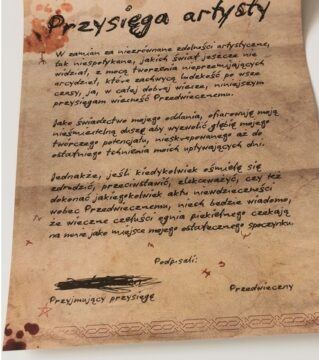 Przysięga artysty
W zamian za niezrównane zdolności artystyczne,
tak niespotykane, jakich świat jeszcze nie
widział, z mocą tworzenia nieprzemijających
arcydzieł, które zachwycą ludzkość po wsze
czasy, ja, w całej dobrej wierze, niniejszym
przysięgam wierność Przedwiecznemu.
Jako świadectwo mojego oddania, ofiarowuję moją
nieśmiertelną duszę aby wyzwolić głębię mojego
twórczego potencjału, nieskrępowanego aż do
ostatniego tchnienia moich upływających dni.
Jednakże, jeśli kiedykolwiek ośmielę się
zdradzić, przeciwstawić, zlekceważyć, czy też
dokonać jakiegokolwiek aktu niewdzięczności
wobec Przedwiecznego, niech będzie wiadomo,
że wieczne czeluści ognia piekielnego czekają
na mnie jako miejsce mojego ostatecznego spoczynku.
Podpisali:
Przyjmujący przysięgę
Przedwieczny